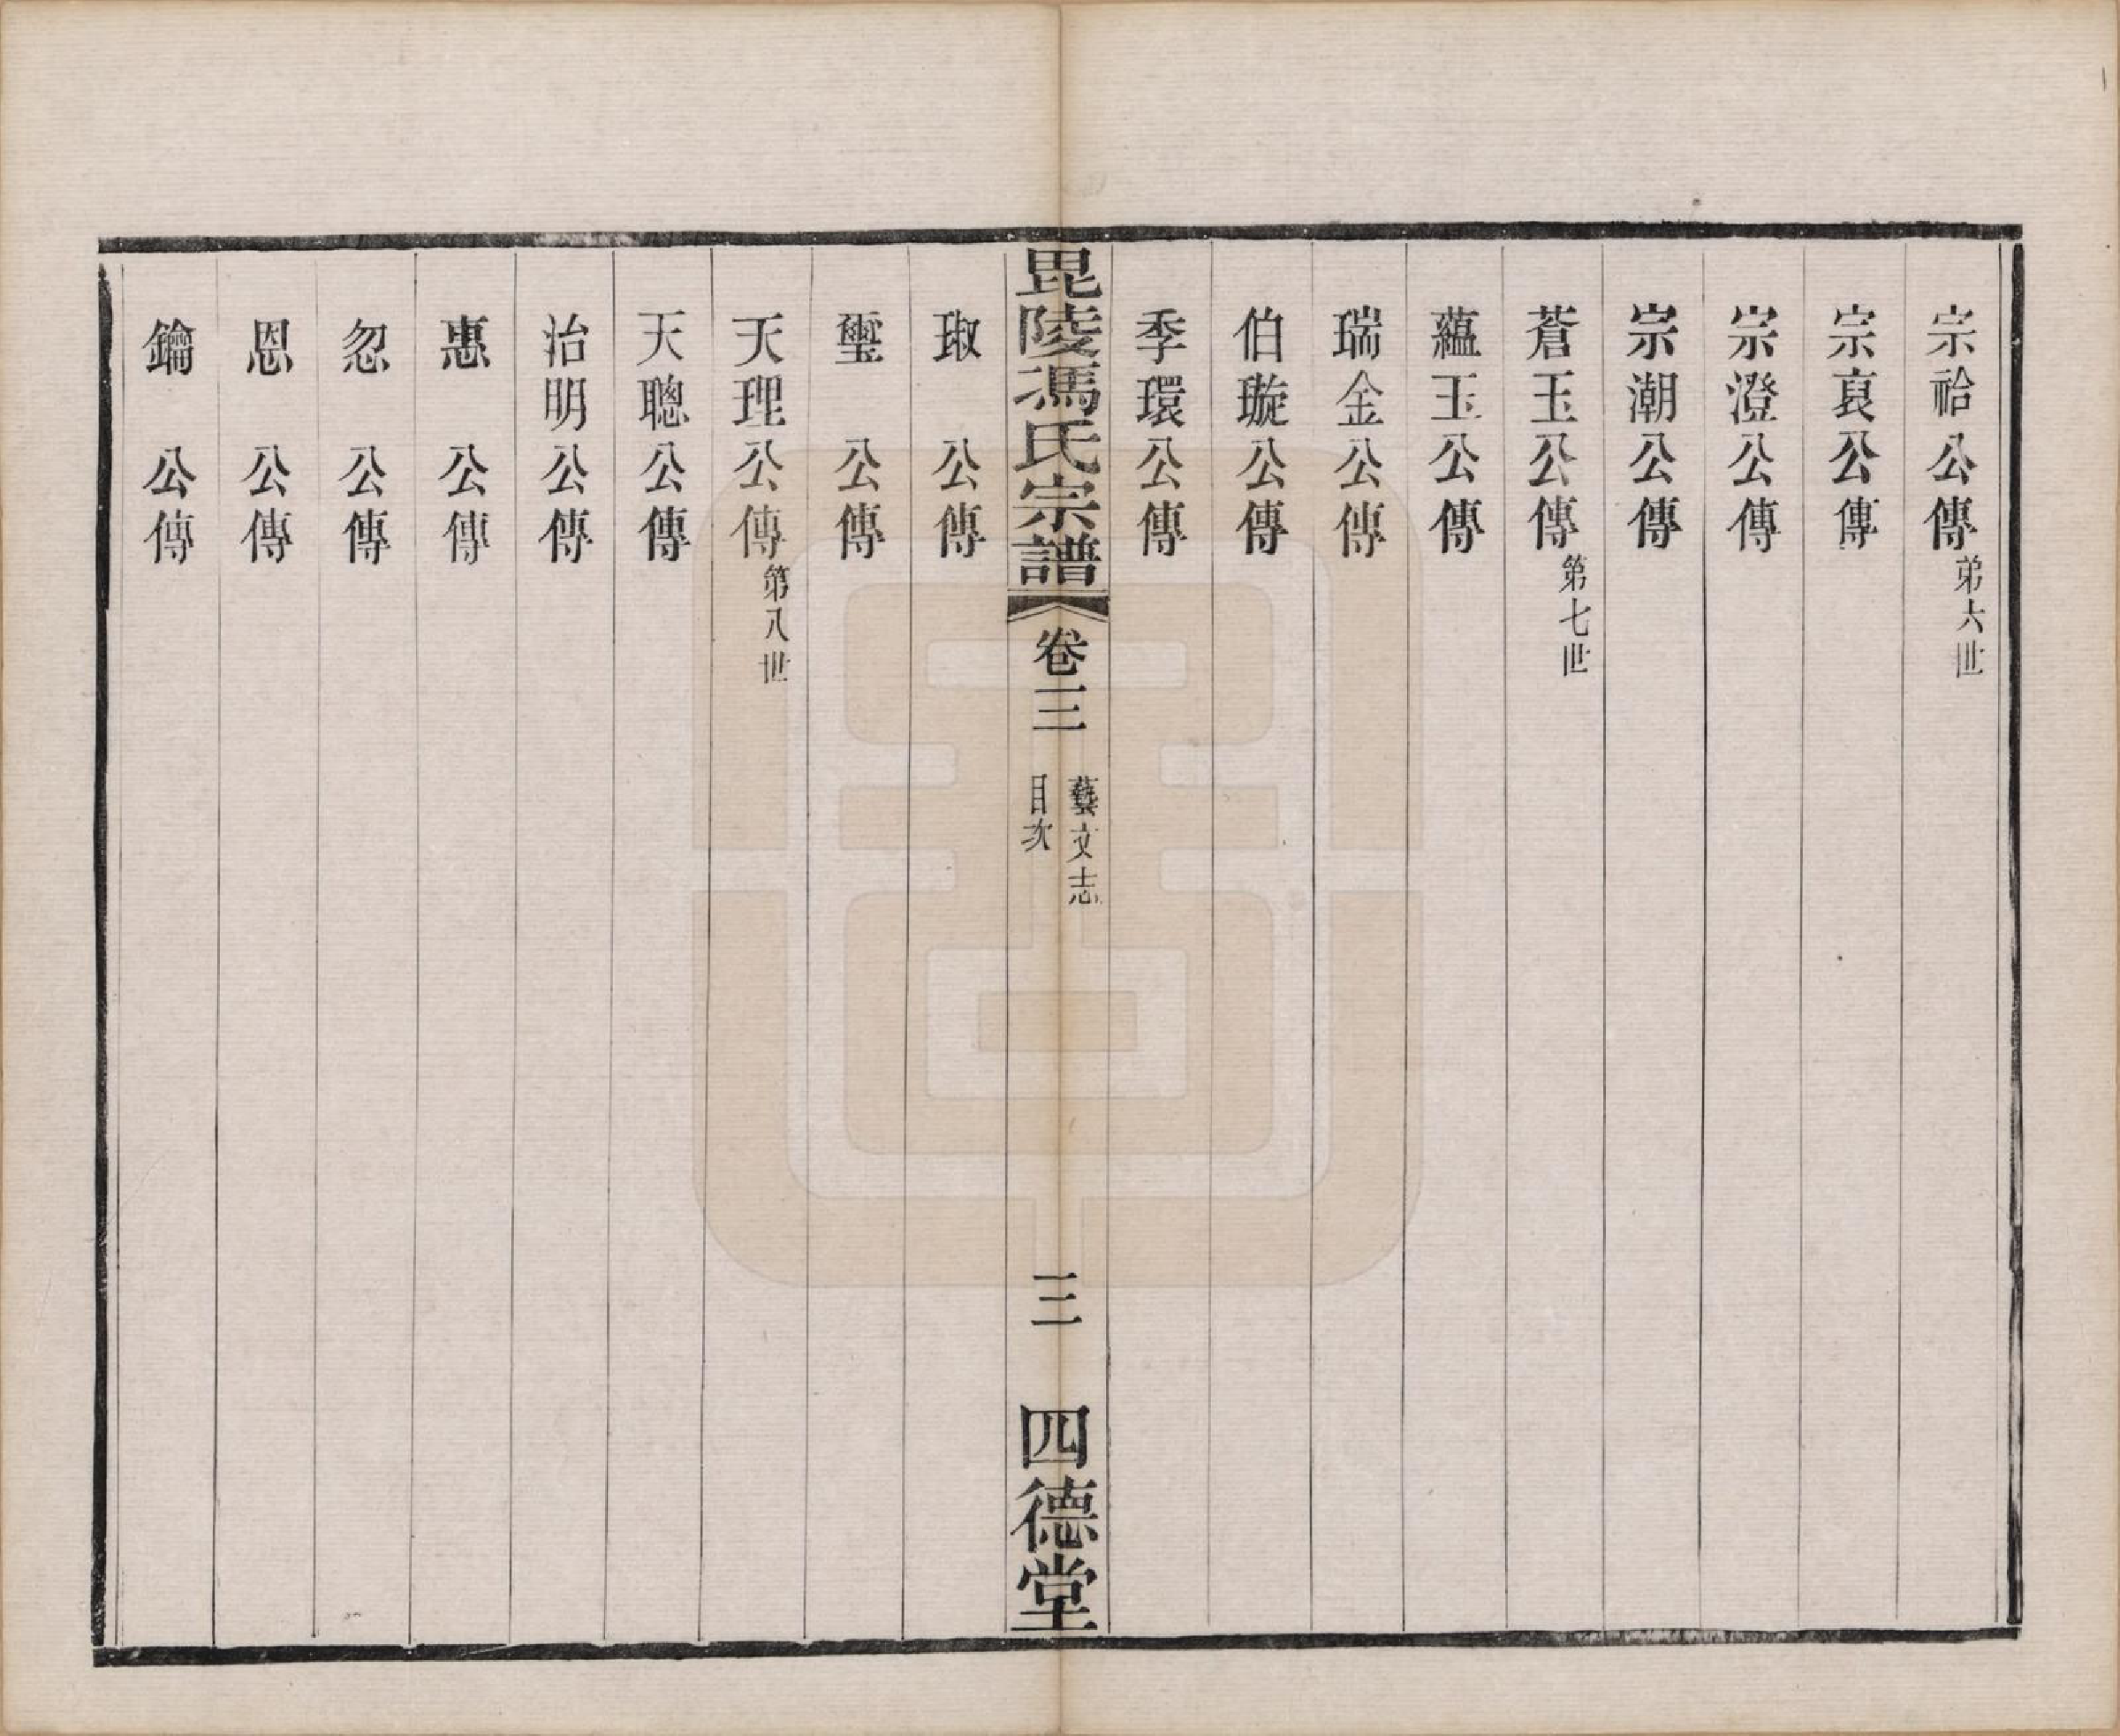 宗祫公傳第六世
宗裒公傳
宗澄公傳
宗潮公傳
蒼玉公傳第七世
蘊玉公傳
瑞金公傳
伯璇公傳
季環公傳
毘陵馮氏宗譜
卷三
藝文志
目次
三
四德堂
琡公傳
璽公傳
天理公傳第八世
天聰公傳
治明公傳
惠公傳
忽公傳
恩公傳
鑰公傳